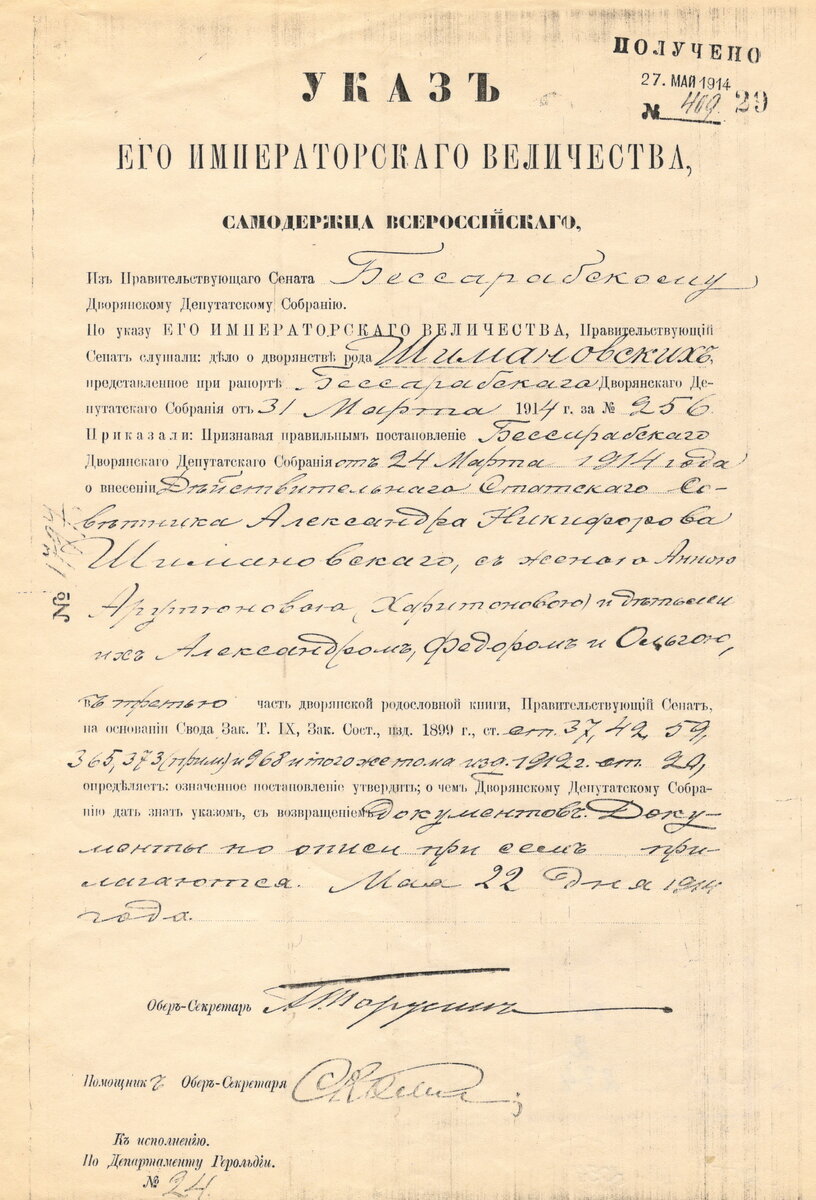 ПОЛУЧЕНО
27. МАЙ 1914
№ 409. 29
УКАЗЪ
ЕГО ИМПЕРАТОРСКАГО ВЕЛИЧЕСТВА,
САМОДЕРЖЦА ВСЕРОССІЙСКАГО,
Изъ Правительствующаго Сената Бессарабскому
Дворянскому Депутатскому Собранію.
По указу ЕГО ИМПЕРАТОРСКАГО ВЕЛИЧЕСТВА, Правительствующій
Сенатъ слушали: дѣло о дворянствѣ рода Шимановскихъ,
представленное при рапортѣ Бессарабскаго Дворянскаго Де-
путатскаго Собранія отъ 31 Марта 1914 г. за № 256.
Приказали: Признавая правильнымъ постановленіе Бессарабскаго
Дворянскаго Депутатскаго Собранія отъ 24 Марта 1914 года
о внесеніи Дѣйствительнаго Статскаго Со-
вѣтника Александра Никифорова
Шимановскаго, съ женою Анною
Арутюновою (Харитоновою) и дѣтьми
ихъ Александромъ, Федоромъ и Ольгою,
въ третью часть дворянской родословной книги, Правительствующій Сенатъ,
на основаніи Свода Зак. Т. IX, Зак. Сост., изд. 1899 г., ст. ст. 37, 42, 59,
365, 373 (прим) и 968 и того же тома изд. 1912 г. ст. 29,
опредѣляетъ: означенное постановленіе утвердить; о чемъ Дворянскому Депутатскому Собра-
нію дать знать указомъ, съ возвращеніемъ документовъ. Доку-
менты по описи при семъ при-
лагаются. Мая 22 дня 1914
года.
Оберъ-Секретарь
Помощникъ Оберъ-Секретаря
Къ исполненію.
По Департаменту Герольдіи.
№ 24
№